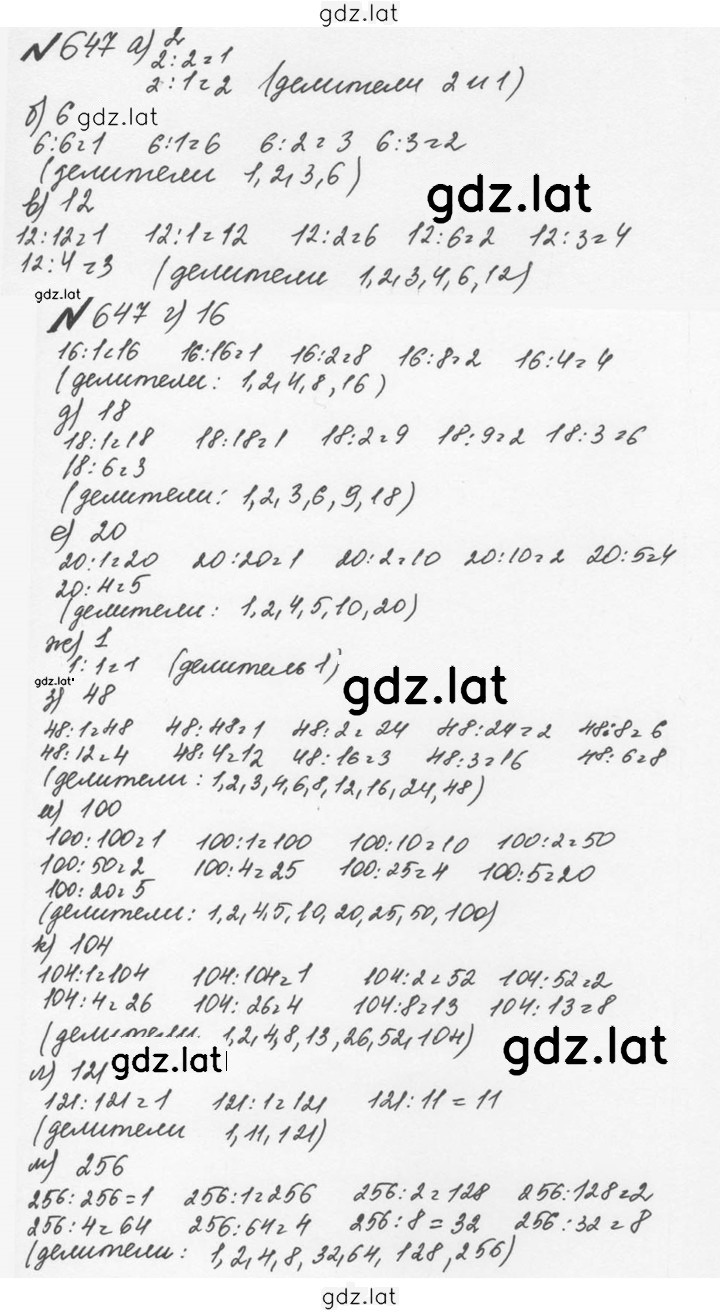 gdz.lat
№647 а) 2
2:2=1
2:1=2 (делители 2 и 1)
б) 6 gdz.lat
6:6=1 6:1=6 6:2=3 6:3=2
(делители 1,2,3,6)
gdz.lat
в) 12
12:12=1 12:1=12 12:2=6 12:6=2 12:3=4
12:4=3 (делители 1,2,3,4,6,12)
gdz.lat
№647 г) 16
16:1=16 16:16=1 16:2=8 16:8=2 16:4=4
(делители: 1,2,4,8,16)
д) 18
18:1=18 18:18=1 18:2=9 18:9=2 18:3=6
18:6=3
(делители: 1,2,3,6,9,18)
е) 20
20:1=20 20:20=1 20:2=10 20:10=2 20:5=4
20:4=5
(делители: 1,2,4,5,10,20)
ж) 1
1:1=1 (делитель 1)
gdz.lat
gdz.lat
з) 48
48:1=48 48:48=1 48:2=24 48:24=2 48:8=6
48:12=4 48:4=12 48:16=3 48:3=16 48:6=8
(делители: 1,2,3,4,6,8,12,16,24,48)
и) 100
100:100=1 100:1=100 100:10=10 100:2=50
100:50=2 100:4=25 100:25=4 100:5=20
100:20=5
(делители: 1,2,4,5,10,20,25,50,100)
к) 104
104:1=104 104:104=1 104:2=52 104:52=2
104:4=26 104:26=4 104:8=13 104:13=8
(делители: 1,2,4,8,13,26,52,104)
gdz.lat
gdz.lat
л) 121
121:121=1 121:1=121 121:11=11
(делители 1,11,121)
м) 256
256:256=1 256:1=256 256:2=128 256:128=2
256:4=64 256:64=4 256:8=32 256:32=8
(делители: 1,2,4,8,32,64,128,256)
gdz.lat